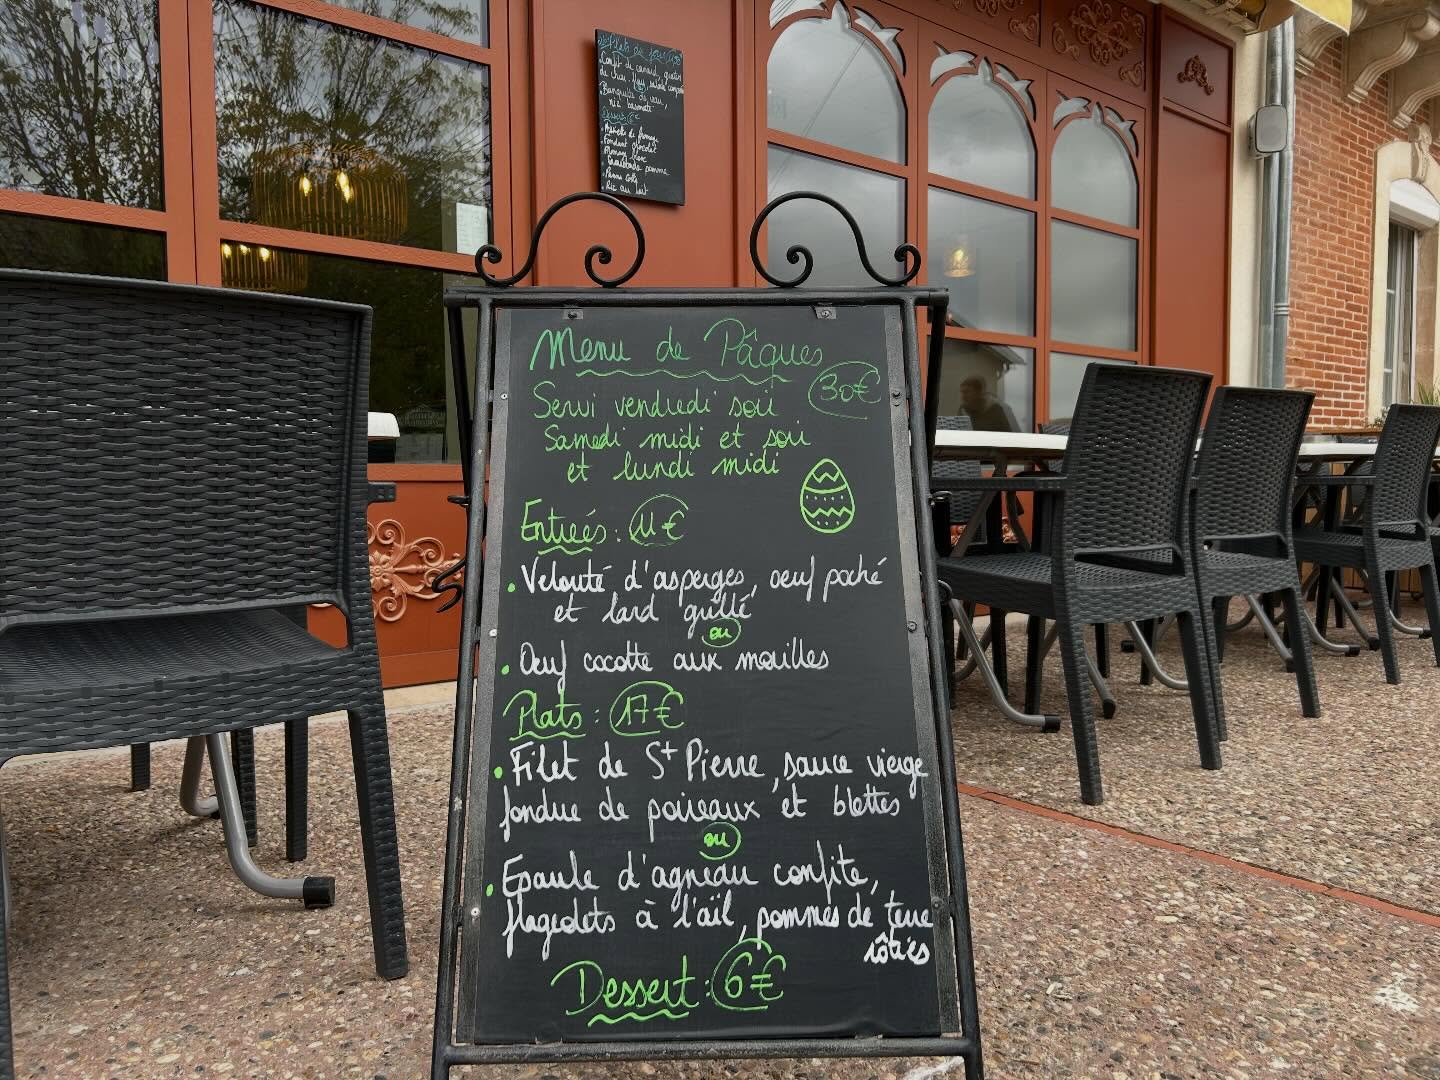 Plats du jour
Confit de canard,
Blanquette de veau,
riz basmati
Desserts
Fondant chocolat
Panna Cotta
Riz au lait
Menu de Pâques
30€
Servi vendredi soir
Samedi midi et soir
et lundi midi
Entrées : 11€
• Velouté d'asperges, oeuf poché
et lard grillé
ou
• Oeuf cocotte aux morilles
Plats : 17€
• Filet de St Pierre, sauce vierge
fondue de poireaux et blettes
ou
• Epaule d'agneau confite,
flageolets à l'aïl, pommes de terre
rôties
Dessert : 6€